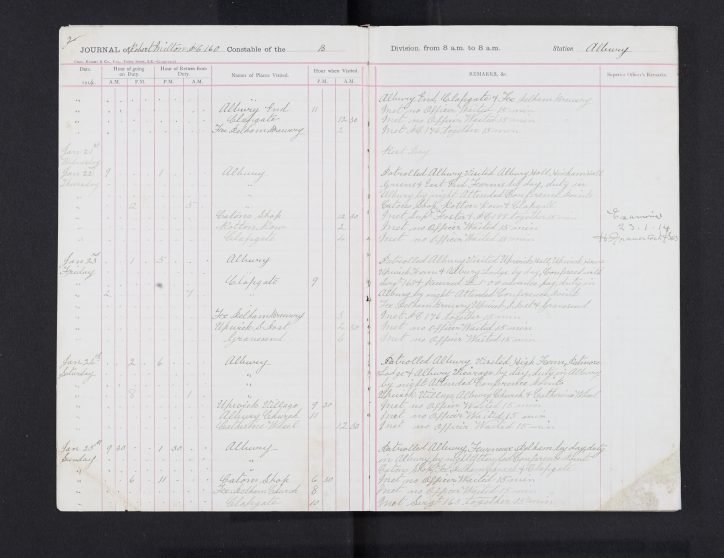 2
JOURNAL of Robert Milton PC 160 Constable of the B Division, from 8 a.m. to 8 a.m. Station Albury
Date. Hour of going on Duty. Hour of Return from Duty. Names of Places Visited. Hour when Visited. REMARKS, &c. Superior Officer's Remarks.
1914 A.M. P.M. P.M. A.M. P.M. A.M.
Albury End Clapgate & Fox Pelham Brewery
Albury End 11 Met no Officer Waited 15 min
Clapgate 12 30 Met no Officer Waited 15 min
Fox Pelham Brewery 2 Met PC 176 together 15 min
Jan 21st
Wednesday Rest Day
Jan 22 9 1 Albury Patrolled Albury Visited Albury Hall
Thursday Farms by day, duty in
Albury by night Attended Conference Points
12 5 Eatons Shop, Patton Row & Clapgate
Eatons Shop 12 30 Met Supt Foster & PC together 15 min
Row 2 Met no Officer Waited 15 min
Clapgate 4 Met no Officer Waited 15 min
Examined
23.1.14
Jan 23rd 1 5 Albury Patrolled Albury Visited Upwick Hall, Upwick
Friday Upwick Farm & Albury Lodge by day, Conferred with
Clapgate 9 Sergt 164 & pay, duty in
2 7 Albury by night Attended Conference Points
Fox Pelham Brewery Upwick S Post & Gravesend
Fox Pelham Brewery 3 Met PC 176 together 15 min
Upwick S Post 4 30 Met no Officer Waited 15 min
Gravesend 6 Met no Officer Waited 15 min
Jan 24th 2 6 Albury Patrolled Albury, Visited Farm, Patmore
Saturday Lodge & Albury Vicarage by day, duty in Albury
by night Attended Conference Points
8 1 Upwick Village Albury Church & Catherine Wheel
Upwick Village 9 30 Met no Officer Waited 15 min
Albury Church 11 Met no Officer Waited 15 min
Catherine Wheel 12 30 Met no Officer Waited 15 min
Jan 25th 9 30 1 30 Albury Patrolled Albury, Furneaux Pelham by day, duty
Sunday in Albury by night Attended Conference Points
Eatons Shop, Fox Pelham Church & Clapgate
6 11 Eatons Shop 6 30 Met no Officer Waited 15 min
Fox Pelham Church 8 Met no Officer Waited 15 min
Clapgate 10 Met Sergt 163 together 15 min